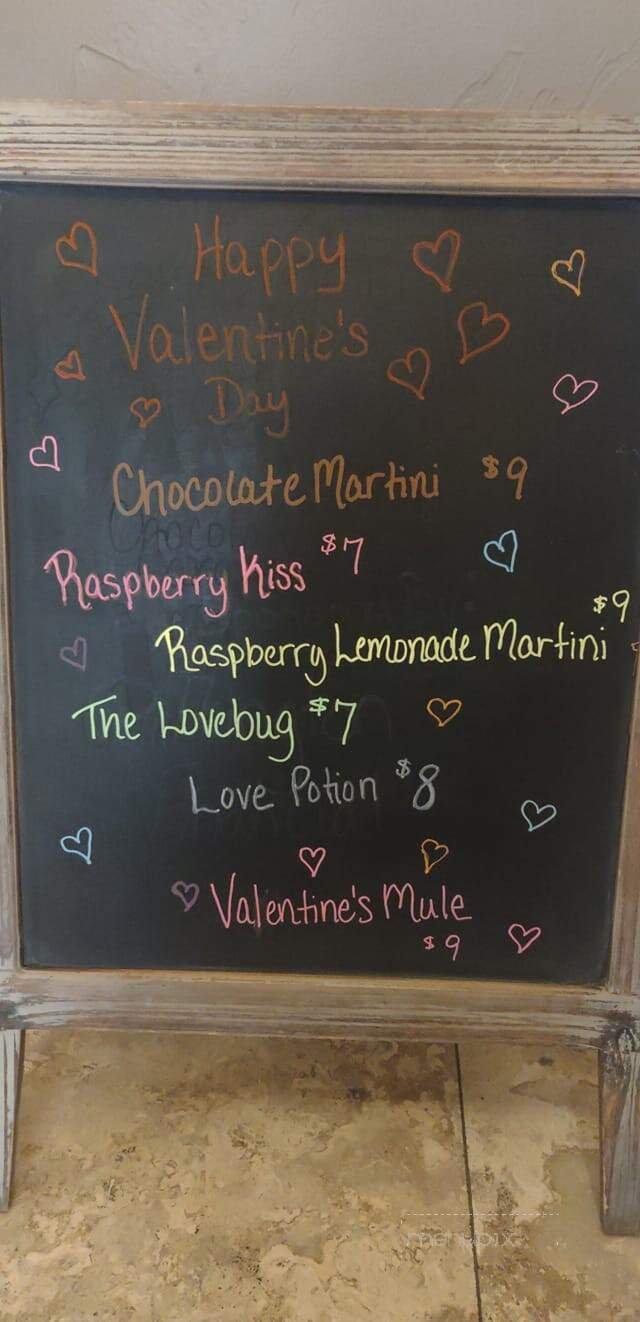 Happy
Valentine's
Day
Chocolate Martini $9
Raspberry Kiss $7
Raspberry Lemonade Martini $9
The Lovebug $7
Love Potion $8
Valentine's Mule
$9
menupix